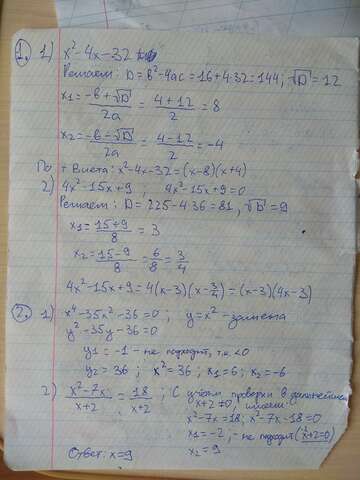 1. 1) x²-4x-32
Решаем: D = b²-4ac = 16+4·32 = 144; √D = 12
x₁ = (-b+√D)/2a = (4+12)/2 = 8
x₂ = (-b-√D)/2a = (4-12)/2 = -4
По т Виета: x²-4x-32 = (x-8)(x+4)
2) 4x²-15x+9; 4x²-15x+9=0
Решаем: D = 225-4·36 = 81, √D = 9
x₁ = (15+9)/8 = 3
x₂ = (15-9)/8 = 6/8 = 3/4
4x²-15x+9 = 4(x-3)(x-3/4) = (x-3)(4x-3)
2. 1) x⁴-35x²-36=0; y=x² - замена
y²-35y-36=0
y₁ = -1 - не подходит, т.к. <0
y₂ = 36; x²=36; x₁=6; x₂=-6
2) (x²-7x)/(x+2) = 18/(x+2); С учётом проверки в дальнейшем
x+2≠0, имеем:
x²-7x=18; x²-7x-18=0
x₁=-2, - не подходит (-2+2=0)
x₂=9
Ответ: x=9